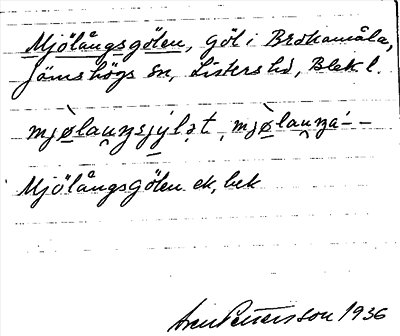 Mjölångsgölen, göl i Brokamåla,
Jämshögs sn, Listers hd, Blek. l.
mjø̀lau̯ŋsjy̱lət, mjø̀lau̯ŋa- –
Mjölångsgölen ek, bek
Pettersson 1936